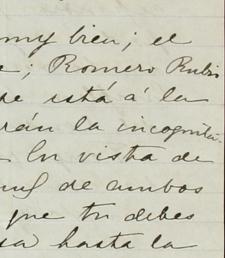 my bien; el
; Romero Rubio
está á la
rán la incognita.
En vista de
de ambos
que tu debes
sa hasta la